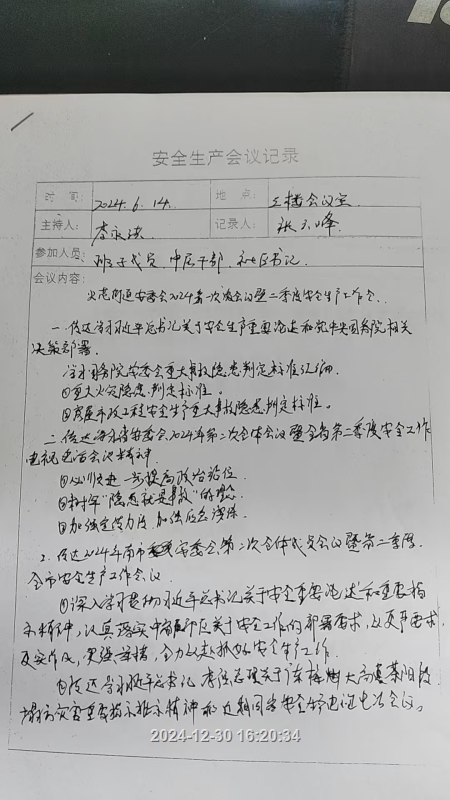 安全生产会议记录
时间: 2024.6.14. 地点: 三楼会议室
主持人: 李 记录人: 峰
参加人员: 班子成员 中层干部 社区书记
会议内容:
街道安委会2024第二次会议暨二季度安全生产工作会.
一.传达学习习近平总书记关于安全生产重要论述和党中央国务院相关
决策部署.
学习国务院安委会重大事故隐患判定标准汇编
①重大火灾隐患判定标准.
②房屋市政工程安全生产重大事故隐患判定标准.
二.传达海南省安委会2024年第二次全体会议暨全省第二季度安全工作
电视电话会议精神
①必须进一步提高政治站位
②树牢"隐患就是事故"的理念
③加强宣传力度 加强应急演练
2.传达2024年南市安委会第二次全体成员会议暨第二季度
全市安全生产工作会议
①深入学习贯彻习近平总书记关于安全重要论述和重要指
示精神,认真落实中省市区关于安全工作的部署要求,以更严要求
更实作风,更强举措,全力以赴抓好安全生产工作
②传达学习习近平总书记 李强总理关于广东梅州大高速茶阳段
塌方灾害重要指示批示精神和近期国务安全生产电视电话会议。
2024-12-30 16:20:34